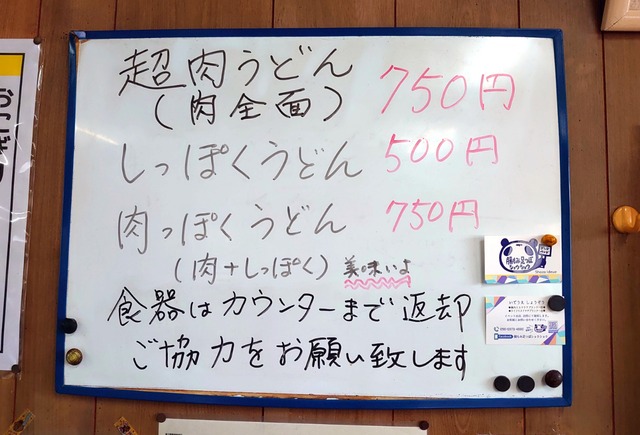 超肉うどん 750円
(肉全面)
しっぽくうどん 500円
肉っぽくうどん 750円
(肉+しっぽく) 美味いよ
食器はカウンターまで返却
ご協力をお願い致します
おにぎり